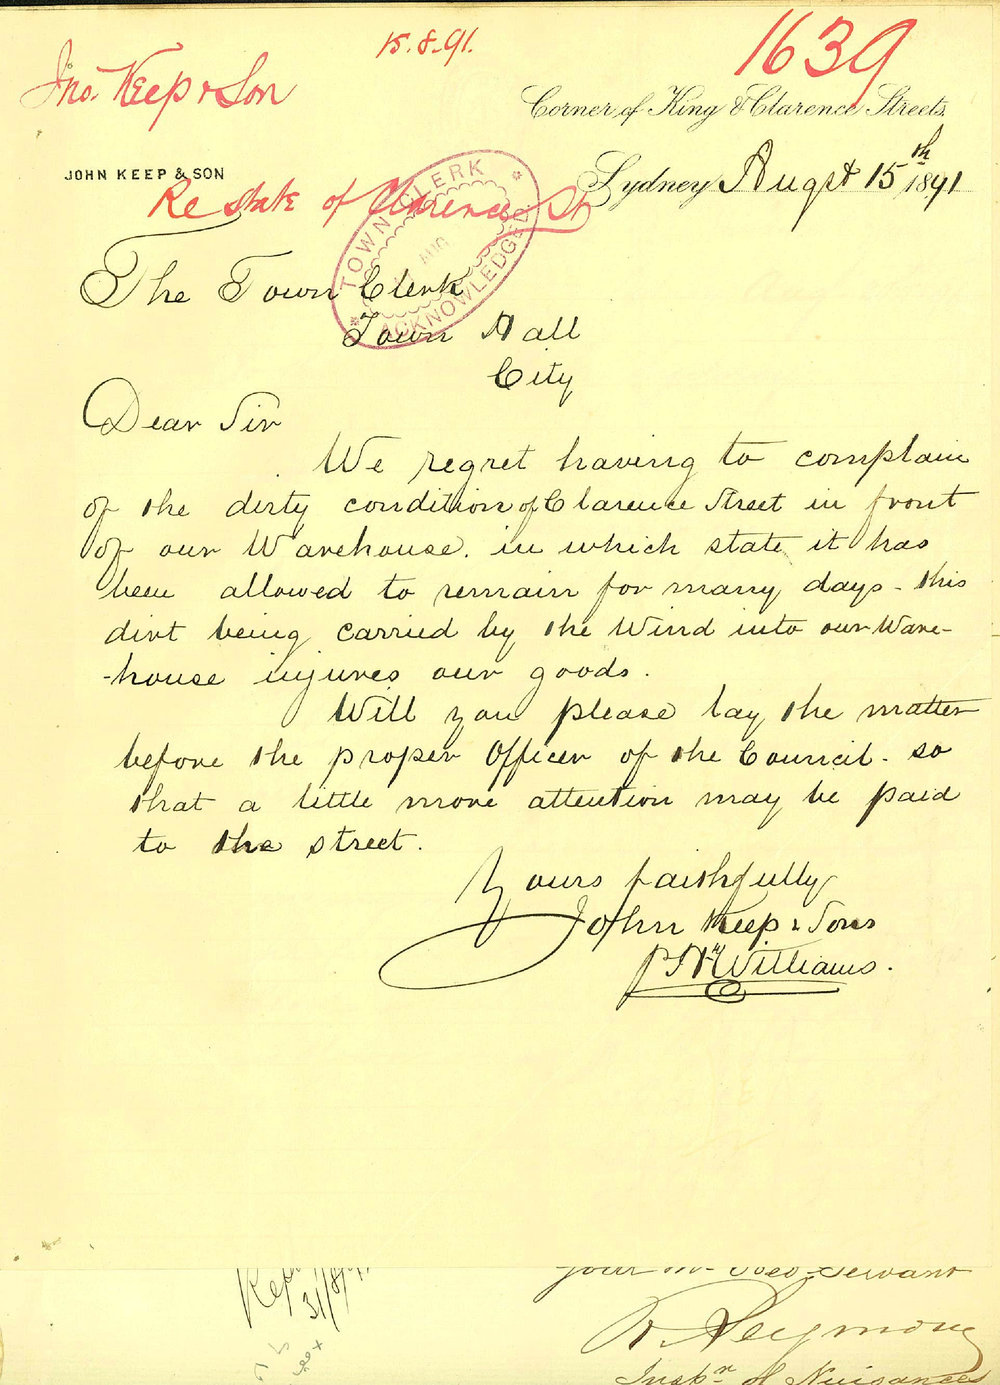 15.8.91.
1639
Jno. Keep & Son
Corner of King & Clarence Streets.
JOHN KEEP & SON
Sydney Augst 15th 1891
Re State of Clarence St
TOWN CLERK
AUG
ACKNOWLEDGED
The Town Clerk
Town Hall
City
Dear Sir
We regret having to complain
of the dirty condition of Clarence Street in front
of our Warehouse. in which state it has
been allowed to remain for many days - this
dirt being carried by the Wind into our Ware-
-house injures our goods.
Will you please lay the matter
before the proper Officer of the Council - so
that a little more attention may be paid
to the street.
Yours faithfully
John Keep & Sons
Williams.
your m. Obed Servant
31/8/91
R. Seymour
Inspr of Nuisances